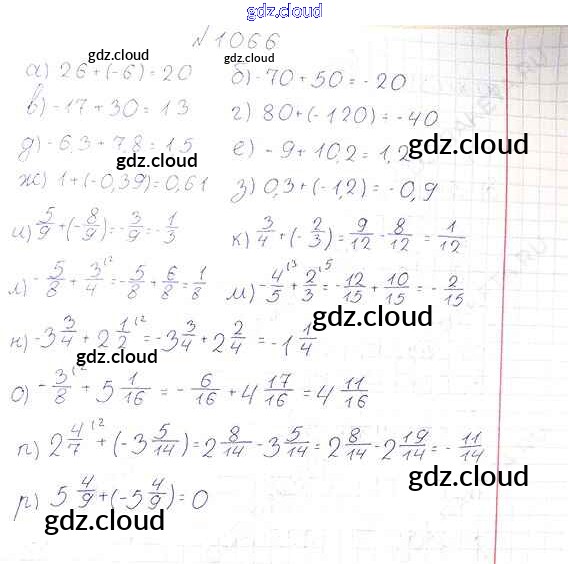 gdz.cloud
gdz.cloud
№1066
а) 26+(-6)=20 б) -70+50=-20
gdz.cloud gdz.cloud
в) -17+30=13 г) 80+(-120)=-40
д) -6,3+7,8=1,5 е) -9+10,2=1,2
gdz.cloud gdz.cloud
ж) 1+(-0,39)=0,61 з) 0,3+(-1,2)=-0,9
gdz.cloud
и) 5/9+(-8/9)=-3/9=-1/3 к) 3/4+(-2/3)=9/12-8/12=1/12
gdz.cloud
л) -5/8+3/4\2=-5/8+6/8=1/8 м) -4/5\3+2/3\5=-12/15+10/15=-2/15
gdz.cloud
н) -3 3/4+2 1/2\2=-3 3/4+2 2/4=-1 1/4
gdz.cloud
о) -3/8\2+5 1/16=-6/16+4 17/16=4 11/16
gdz.cloud
п) 2 4/7\2+(-3 5/14)=2 8/14-3 5/14=2 8/14-2 19/14=-11/14
gdz.cloud
р) 5 4/9+(-5 4/9)=0
gdz.cloud